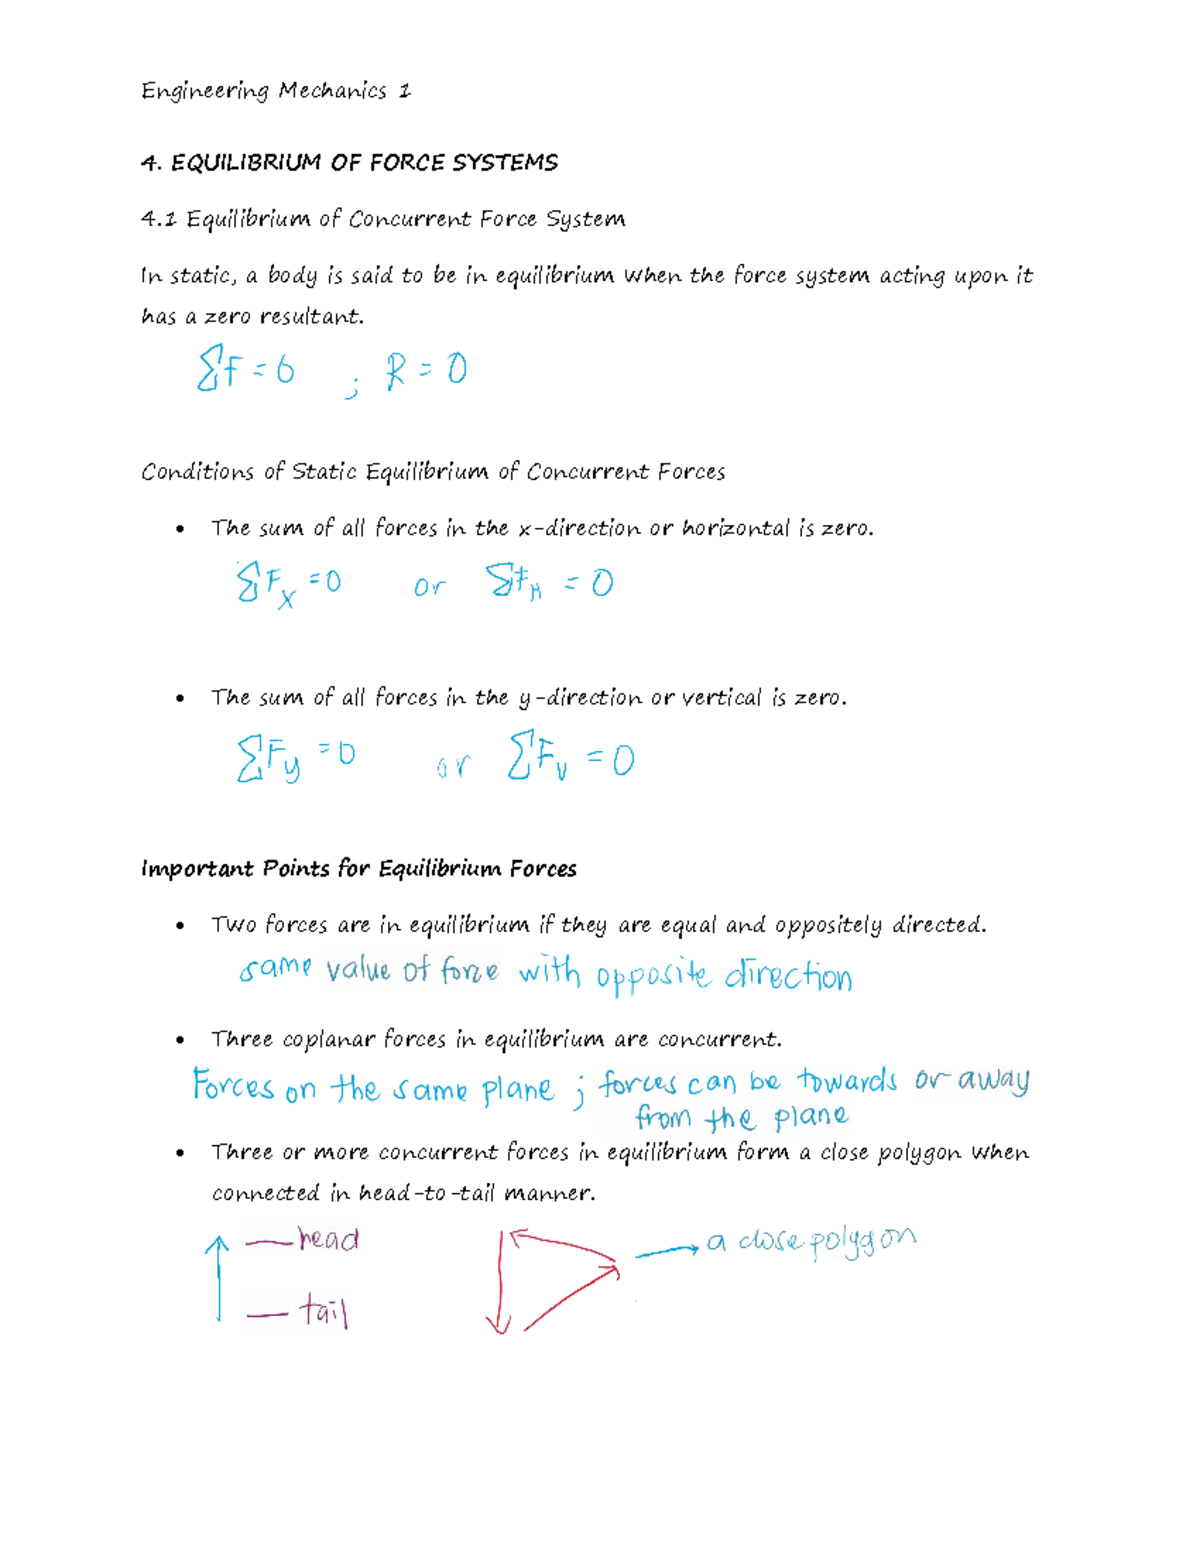 Engineering Mechanics 1
4. EQUILIBRIUM OF FORCE SYSTEMS
4.1 Equilibrium of Concurrent Force System
In static, a body is said to be in equilibrium when the force system acting upon it
has a zero resultant.
ΣF = 0 ; R = 0
Conditions of Static Equilibrium of Concurrent Forces
• The sum of all forces in the x-direction or horizontal is zero.
ΣF_x = 0 or ΣF_H = 0
• The sum of all forces in the y-direction or vertical is zero.
ΣF_y = 0 or ΣF_V = 0
Important Points for Equilibrium Forces
• Two forces are in equilibrium if they are equal and oppositely directed.
same value of force with opposite direction
• Three coplanar forces in equilibrium are concurrent.
Forces on the same plane ; forces can be towards or away
from the plane
• Three or more concurrent forces in equilibrium form a close polygon when
connected in head-to-tail manner.
head
a close polygon
tail